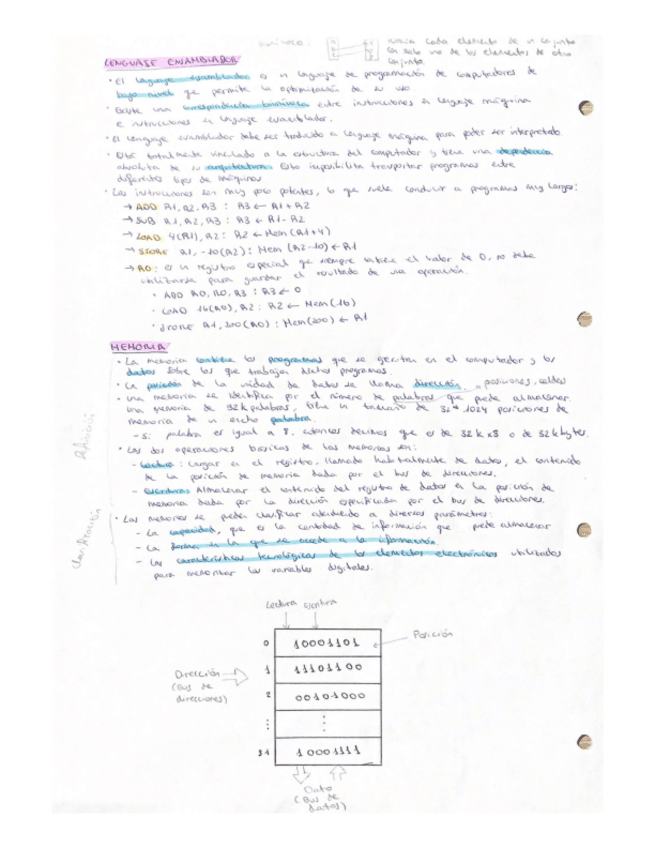 biunívoca: asocia cada elemento de un conjunto
con solo uno de los elementos de otro
conjunto
LENGUAJE ENSAMBLADOR
· El lenguaje ensamblador es un lenguaje de programación de computadores de
bajo nivel que permite la optimización de su uso
· Existe una correspondencia biunívoca entre instrucciones en lenguaje máquina
e instrucciones en lenguaje ensamblador.
· El lenguaje ensamblador debe ser traducido a lenguaje máquina para poder ser interpretado
· Está totalmente vinculado a la estructura del computador y tiene una dependencia
absoluta de su arquitectura. Esto imposibilita transportar programas entre
diferentes tipos de máquinas
· Las instrucciones son muy poco potentes, lo que suele conducir a programas muy largos:
→ ADD R1, R2, R3 : R3 ← R1 + R2
→ SUB R1, R2, R3 : R3 ← R1 - R2
→ LOAD 4(R1), R2 : R2 ← Mem (R1+4)
→ STORE R1, -10(R2) : Mem (R2-10) ← R1
→ R0: es un registro especial que siempre contiene el valor de 0, no debe
utilizarse para guardar el resultado de una operación.
· ADD R0, R0, R3 : R3 ← 0
· LOAD 16(R0), R2 : R2 ← Mem (16)
· STORE R1, 200(R0) : Mem(200) ← R1
MEMORIA
· La memoria contiene los programas que se ejecutan en el computador y los
datos sobre los que trabajan dichos programas.
· La posición de la unidad de datos se llama dirección. posiciones, celdas
· Una memoria se identifica por el número de palabras que puede almacenar.
Una memoria de 32k palabras, tiene un tamaño de 32*1024 posiciones de
memoria de un ancho palabra.
- Si palabra es igual a 8, entonces decimos que es de 32k x8 o de 32 kbytes.
· Las dos operaciones básicas de las memorias son:
- Lectura: Cargar en el registro, llamado habitualmente de datos, el contenido
de la posición de memoria dada por el bus de direcciones.
- Escritura: Almacenar el contenido del registro de datos en la posición de
memoria dada por la dirección especificada por el bus de direcciones.
· Las memorias se pueden clasificar atendiendo a diversos parámetros:
- La capacidad, que es la cantidad de información que puede almacenar
- La forma en la que se accede a la información.
- Las características tecnológicas de los elementos electrónicos utilizados
para memorizar las variables digitales.
Definición
Clasificación
Lectura escritura
0 10001101
Posición
1 11101100
Dirección
(Bus de
direcciones)
2 00101000
⋮ ⋮
31 10001111
Dato
(Bus de
datos)